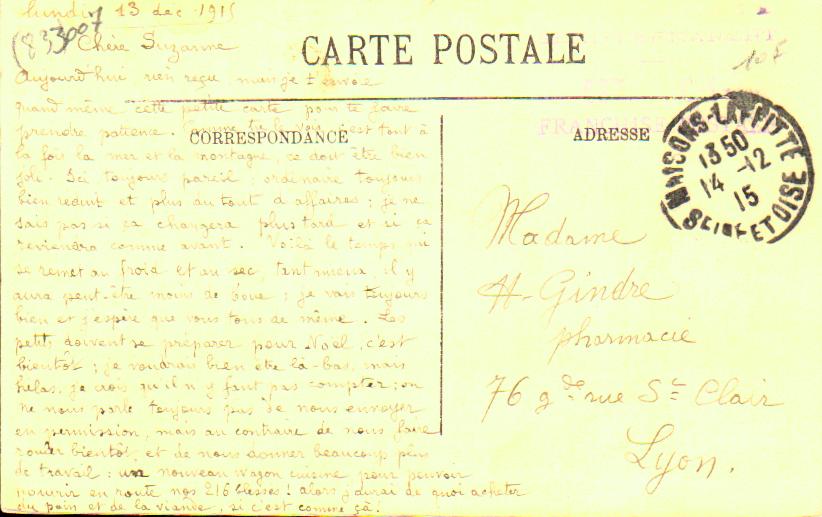 lundi 13 déc 1915
(833007
Chère Suzanne
CARTE POSTALE
10 F
Aujourd'hui rien reçu, mais je t'envoie
quand même cette petite carte pour te faire
prendre patience. c'est tout à
CORRESPONDANCE
ADRESSE
FRANCHISE
la fois la mer et la montagne, ce doit être bien
joli. Ici toujours pareil ; ordinaire toujours
bien reduit et plus du tout d'affaires ; je ne
sais pas si ça changera plus tard et si ça
reviendra comme avant. Voilà le temps qui
se remet au froid et au sec, tant mieux, il y
aura peut-être moins de boue ; je vais toujours
bien et j'espère que vous tous de même. Les
petits doivent se préparer pour Noël, c'est
bientôt ; je voudrais bien être là-bas, mais
hélas, je crois qu'il n'y faut pas compter ; on
ne nous parle toujours pas de nous envoyer
en permission, mais au contraire de nous faire
rouler bientôt, et de nous donner beaucoup plus
de travail : un nouveau wagon cuisine pour pouvoir
nourrir en route nos 216 blessés ! alors j'aurai de quoi acheter
du pain et de la viande, si c'est comme ça !
MAISONS-LAFFITTE
13 50
14 -12
15
SEINE ET OISE
Madame
H. Gindre
pharmacie
76 gde rue St Clair
Lyon.